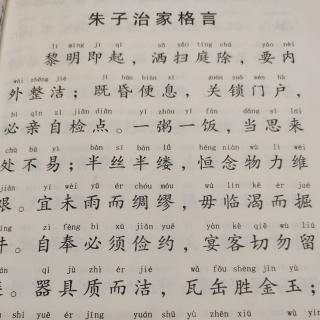 朱子治家格言
lí míng jí qǐ sǎ sǎo tíng chú yào nèi
黎明即起，洒扫庭除，要内
wài zhěng jié jì hūn biàn xī guān suǒ mén hù
外整洁；既昏便息，关锁门户，
bì qīn zì jiǎn diǎn yì zhōu yí fàn dāng sī lái
必亲自检点。一粥一饭，当思来
chù bú yì bàn sī bàn lǚ héng niàn wù lì wéi
处不易；半丝半缕，恒念物力维
jiān yí wèi yǔ ér chóu móu wú lín kě ér jué
艰。宜未雨而绸缪，毋临渴而掘
jǐng zì fèng bì xū jiǎn yuē yàn kè qiè wù liú
井。自奉必须俭约，宴客切勿留
qì jù zhì ér jié wǎ fǒu shèng jīn yù
。器具质而洁，瓦缶胜金玉；
shí yuē ér jīng yuán shū yù zhēn